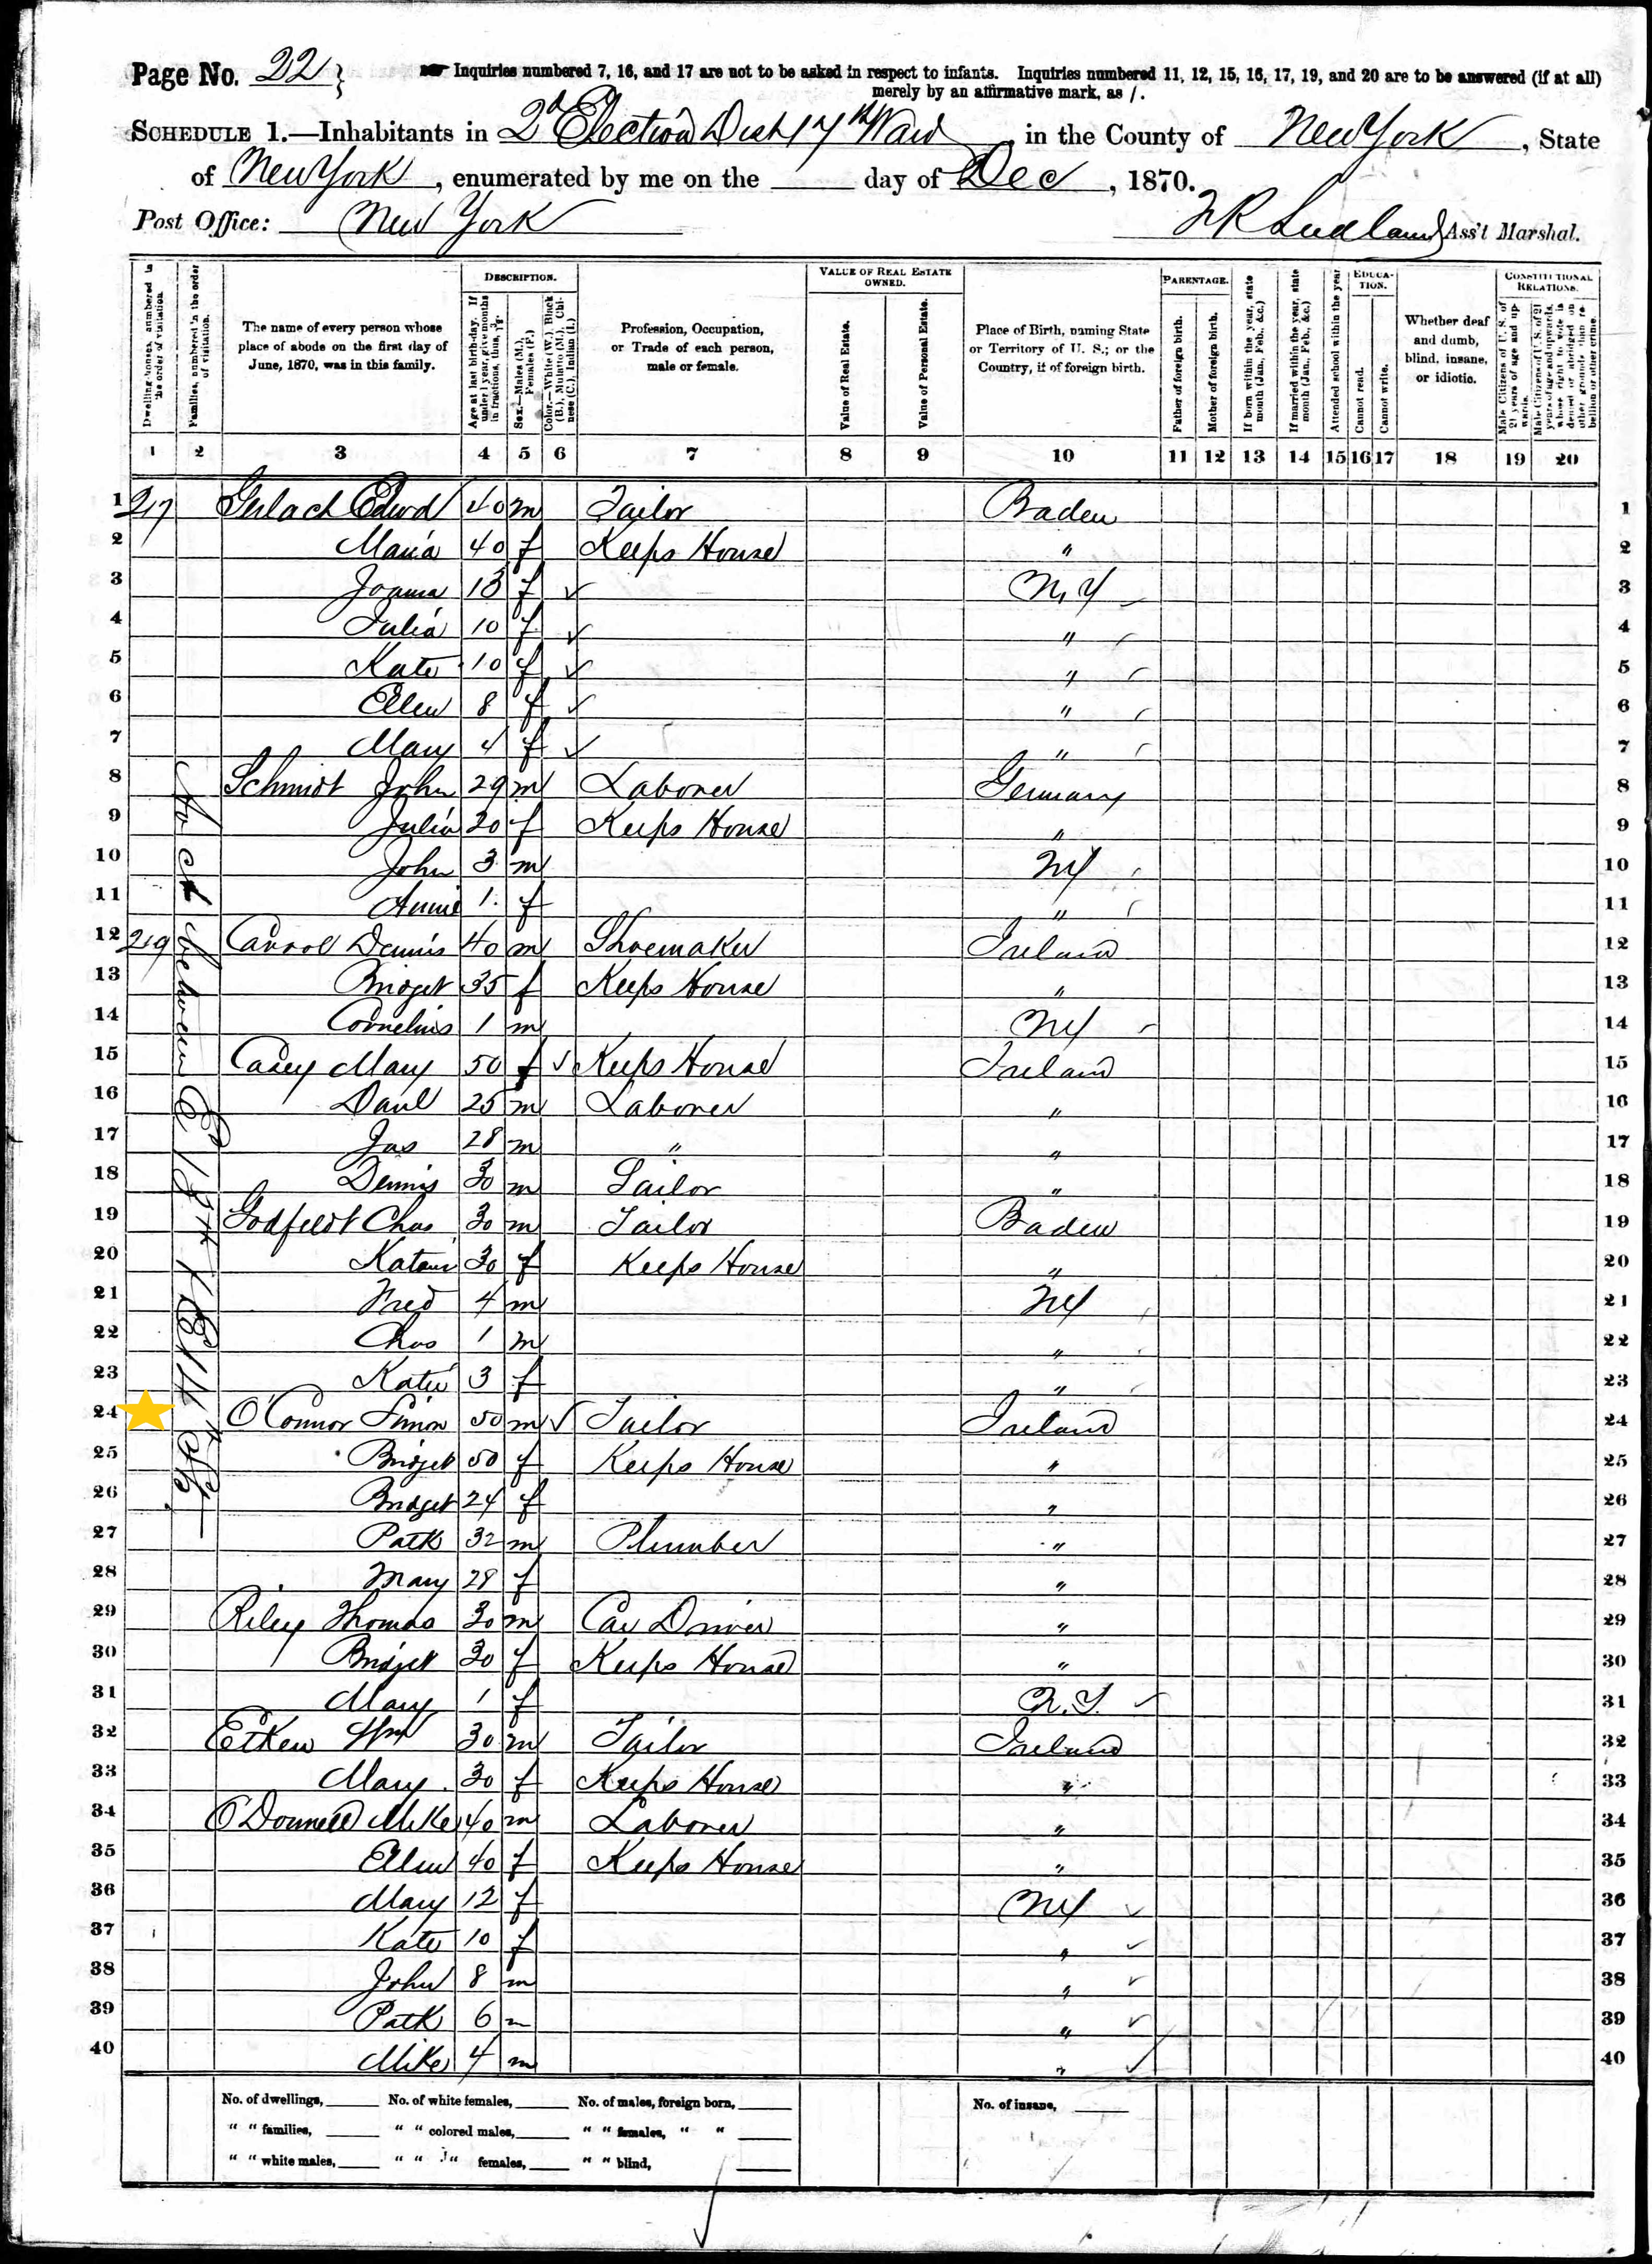 Page No. 22
Inquiries numbered 7, 16, and 17 are not to be asked in respect to infants. Inquiries numbered 11, 12, 15, 16, 17, 19, and 20 are to be answered (if at all)
merely by an affirmative mark, as /.
SCHEDULE 1.—Inhabitants in 2d Election Dist 17th Ward, in the County of New York, State
of New York, enumerated by me on the ___ day of Dec, 1870.
Post Office: New York
Ass't Marshal.
DESCRIPTION.
VALUE OF REAL ESTATE OWNED.
PARENTAGE.
EDUCATION.
CONSTITUTIONAL RELATIONS.
Dwelling-houses, numbered in the order of visitation.
Families, numbered in the order of visitation.
The name of every person whose place of abode on the first day of June, 1870, was in this family.
Age at last birth-day. If under 1 year, give months in fractions, thus, 3/12.
Sex.—Males (M.), Females (F.)
Color.—White (W.), Black (B.), Mulatto (M.), Chinese (C.), Indian (I.)
Profession, Occupation, or Trade of each person, male or female.
Value of Real Estate.
Value of Personal Estate.
Place of Birth, naming State or Territory of U. S.; or the Country, if of foreign birth.
Father of foreign birth.
Mother of foreign birth.
If born within the year, state month (Jan., Feb., &c.)
If married within the year, state month (Jan., Feb., &c.)
Attended school within the year
Cannot read.
Cannot write.
Whether deaf and dumb, blind, insane, or idiotic.
Male Citizens of U. S. of 21 years of age and upwards.
Male Citizens of U. S. of 21 years of age and upwards, whose right to vote is denied or abridged on other grounds than rebellion or other crime.
1 2 3 4 5 6 7 8 9 10 11 12 13 14 15 16 17 18 19 20
1 217 Gerlach Edwd 40 m Tailor Baden 1
2 Maria 40 f Keeps House " 2
3 Joanna 13 f N.Y 3
4 Julia 10 f " 4
5 Kate 10 f " 5
6 Ellen 8 f " 6
7 Mary 4 f " 7
8 Schmidt John 29 m Laborer Germany 8
9 Julia 20 f Keeps House " 9
10 John 3 m NY 10
11 Annie 1 f " 11
12 219 Carrol Dennis 40 m Shoemaker Ireland 12
13 Bridget 35 f Keeps House " 13
14 Cornelius 1 m NY 14
15 Casey Mary 50 f Keeps House Ireland 15
16 Danl 25 m Laborer " 16
17 Jas 28 m " " 17
18 Dennis 30 m Sailor " 18
19 Godfeldt Chas 30 m Tailor Baden 19
20 30 f Keeps House " 20
21 Fred 4 m NY 21
22 Chas 1 m " 22
23 Katie 3 f " 23
24 O'Connor Simon 50 m Tailor Ireland 24
25 Bridget 50 f Keeps House " 25
26 Bridget 24 f " 26
27 Patk 32 m Plumber " 27
28 Mary 28 f " 28
29 Riley Thomas 30 m Car Driver " 29
30 Bridget 30 f Keeps House " 30
31 Mary 1 f N.Y. 31
32 Etkew Wm 30 m Tailor Ireland 32
33 Mary 30 f Keeps House " 33
34 O'Donnell Mike 40 m Laborer " 34
35 Ellen 40 f Keeps House " 35
36 Mary 12 f NY 36
37 Kate 10 f " 37
38 John 8 m " 38
39 Patk 6 m " 39
40 Mike 4 m " 40
No. of dwellings, ___ No. of white females, ___ No. of males, foreign born, ___ No. of insane, ___
" " families, ___ " " colored males, ___ " " females, " " ___
" " white males, ___ " " " females, ___ " " blind, ___